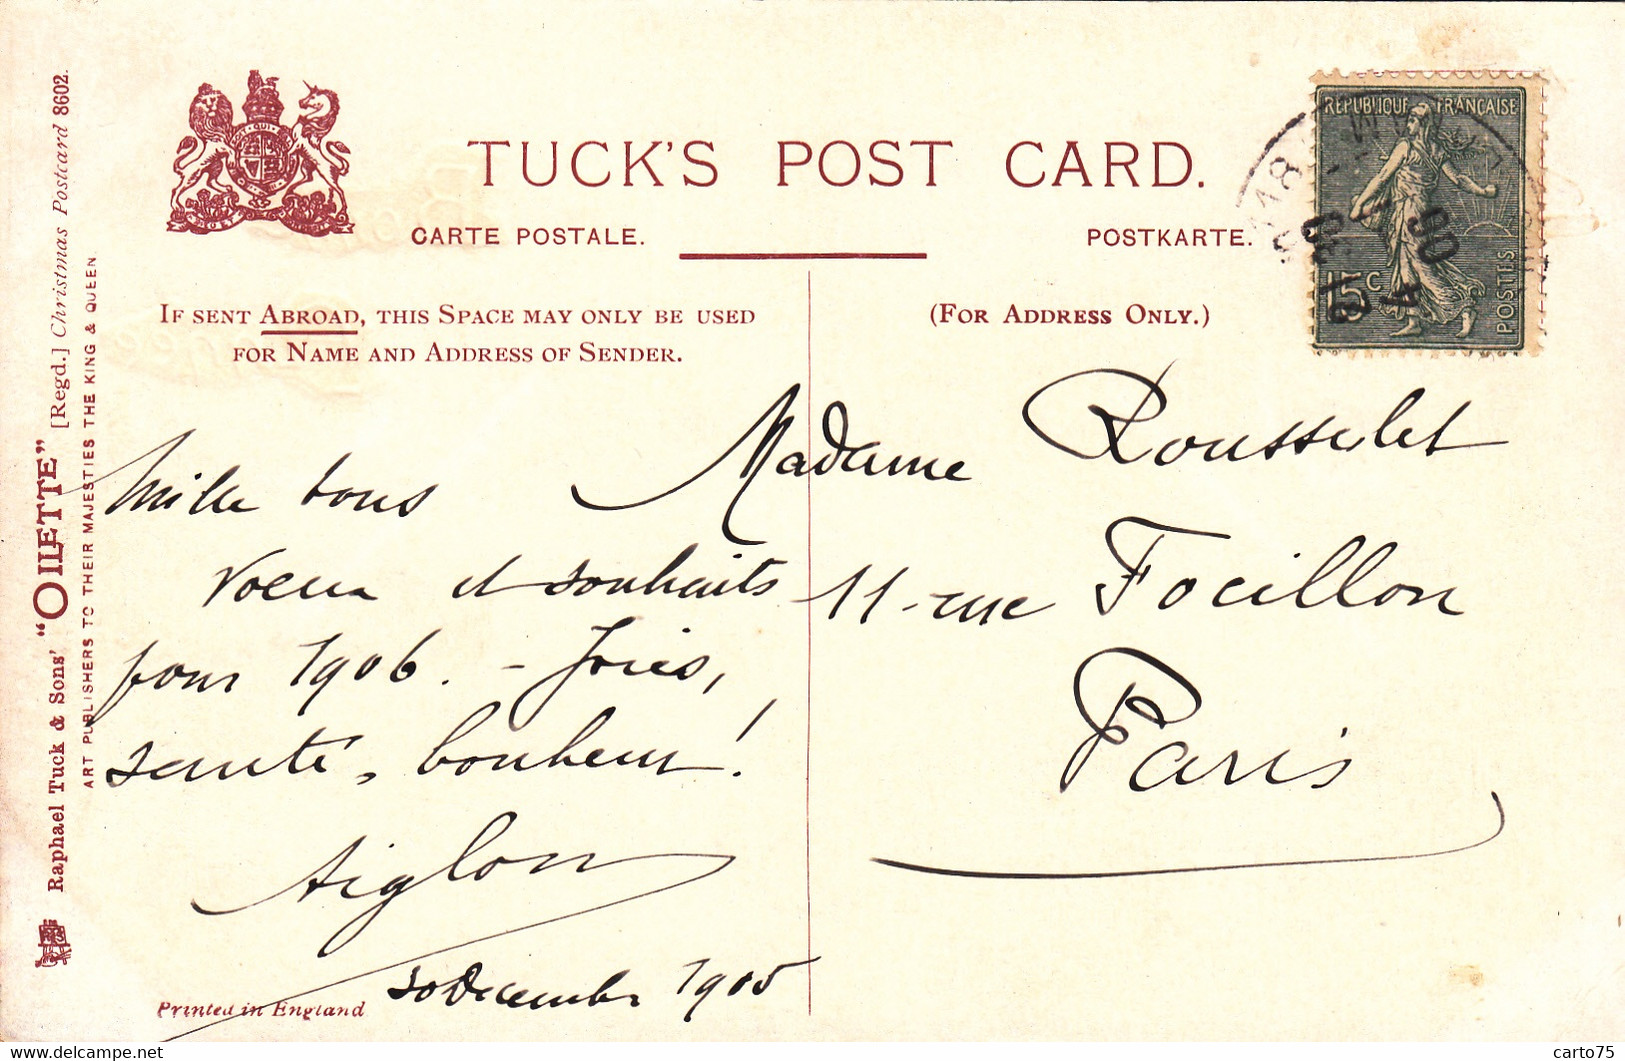 TUCK'S POST CARD.
CARTE POSTALE.
POSTKARTE.
IF SENT ABROAD, THIS SPACE MAY ONLY BE USED
FOR NAME AND ADDRESS OF SENDER.
(FOR ADDRESS ONLY.)
Raphael Tuck & Sons' "OILETTE" [Regd.] Christmas Postcard 8602.
ART PUBLISHERS TO THEIR MAJESTIES THE KING & QUEEN
REPUBLIQUE FRANÇAISE
15c
POSTES
Mille bons
voeux et souhaits
pour 1906. - Joies,
santé, bonheur!
Aiglon
30 Décembre 1905
Madame Rousselet
11 - rue Focillon
Paris
Printed in England
www.delcampe.net
carto75